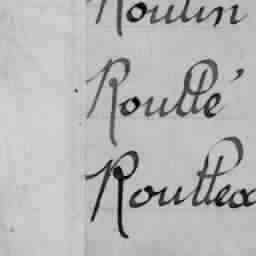 Roulin
Roullé
Roullea